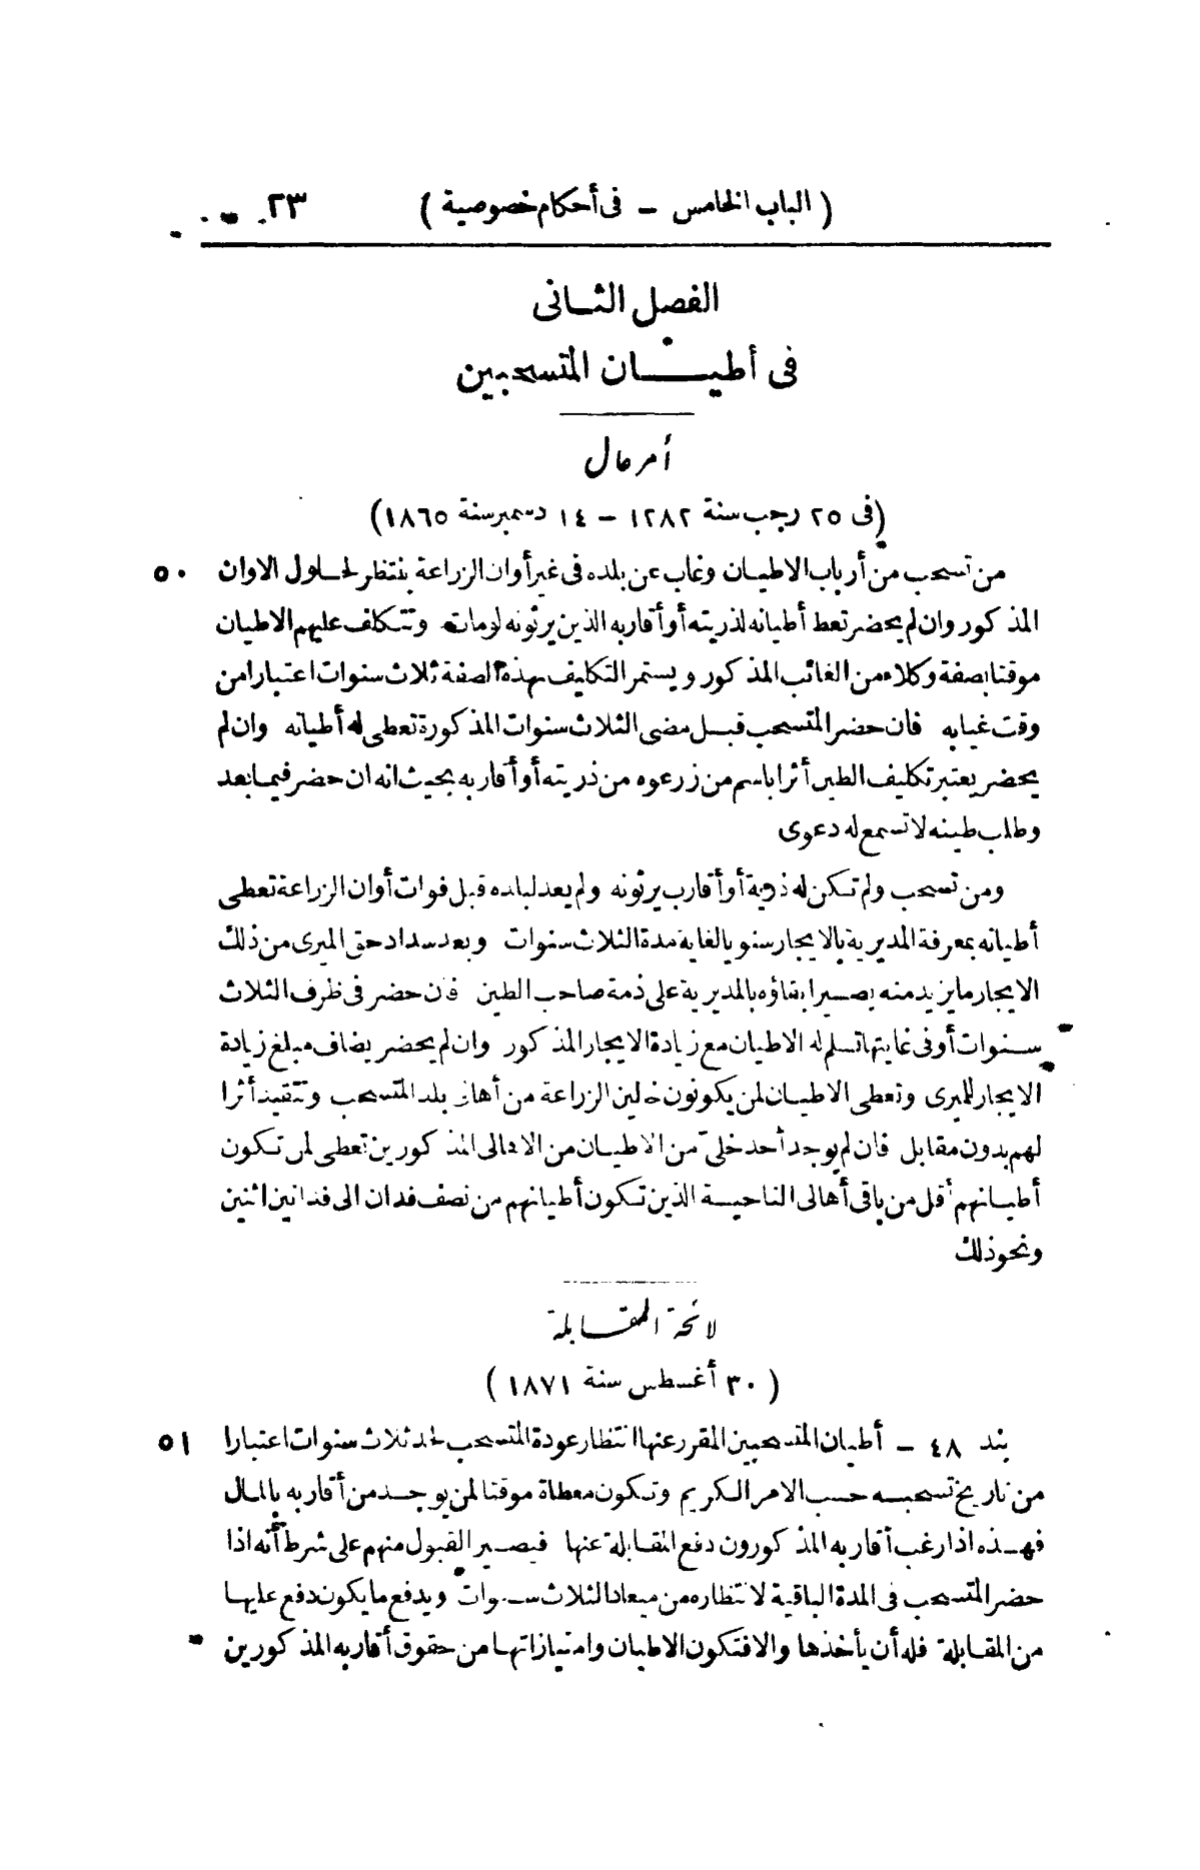 ( الباب الخامس – فى أحكام خصوصية ) ٢٣
الفصل الثانى
فى أطيان المتسحبين
أمر عال
(فى ٢٥ رجب سنة ١٢٨٢ – ١٤ دسمبر سنة ١٨٦٥)
٥٠ من تسحب من أرباب الاطيان وغاب عن بلده فى غير أوان الزراعة ينتظر لحلول الاوان
المذكور وان لم يحضر تعط أطيانه لذريته أو أقاربه الذين يرثونه لو مات وتتكلف عليهم الاطيان
موقتا بصفة وكلاء من الغائب المذكور ويستمر التكليف بهذه الصفة ثلاث سنوات اعتبارا من
وقت غيابه فان حضر المتسحب قبل مضى الثلاث سنوات المذكورة تعطى له أطيانه وان لم
يحضر يعتبر تكليف الطين أثرا باسم من زرعوه من ذريته أو أقاربه بحيث انه ان حضر فيما بعد
وطلب طينه لا تسمع له دعوى
ومن تسحب ولم تكن له ذرية أو أقارب يرثونه ولم يعد لبلده قبل فوات أوان الزراعة تعطى
أطيانه بمعرفة المديرية بالايجار سنويا لغاية مدة الثلاث سنوات وبعد سداد حق الميرى من ذلك
الايجار ما يزيد منه يصير ابقاؤه بالمديرية على ذمة صاحب الطين فان حضر فى ظرف الثلاث
سنوات أو فى غايتها تسلم له الاطيان مع زيادة الايجار المذكور وان لم يحضر يضاف مبلغ زيادة
الايجار للميرى وتعطى الاطيان لمن يكونون خالين الزراعة من أهالى بلد المتسحب وتتقيد أثرا
لهم بدون مقابل فان لم يوجد أحد خلىّ من الاطيان من الاهالى المذكورين تعطى لمن تكون
أطيانهم أقل من باقى أهالى الناحية الذين تكون أطيانهم من نصف فدان الى فدانين اثنين
ونحو ذلك
لائحة المقابلة
( ٣٠ أغسطس سنة ١٨٧١ )
٥١ بند ٤٨ – أطيان المتسحبين المقرر عنها انتظار عودة المتسحب لحد ثلاث سنوات اعتبارا
من تاريخ تسحبه حسب الامر الكريم وتكون معطاة موقتا لمن يوجد من أقاربه بالمال
فهذه اذا رغب أقاربه المذكورون دفع المقابلة عنها فيصير القبول منهم على شرط أنه اذا
حضر المتسحب فى المدة الباقية لانتظاره من ميعاد الثلاث سنوات ويدفع ما يكون دفع عليها
من المقابلة فله أن يأخذها والا فتكون الاطيان وامتيازاتها من حقوق أقاربه المذكورين